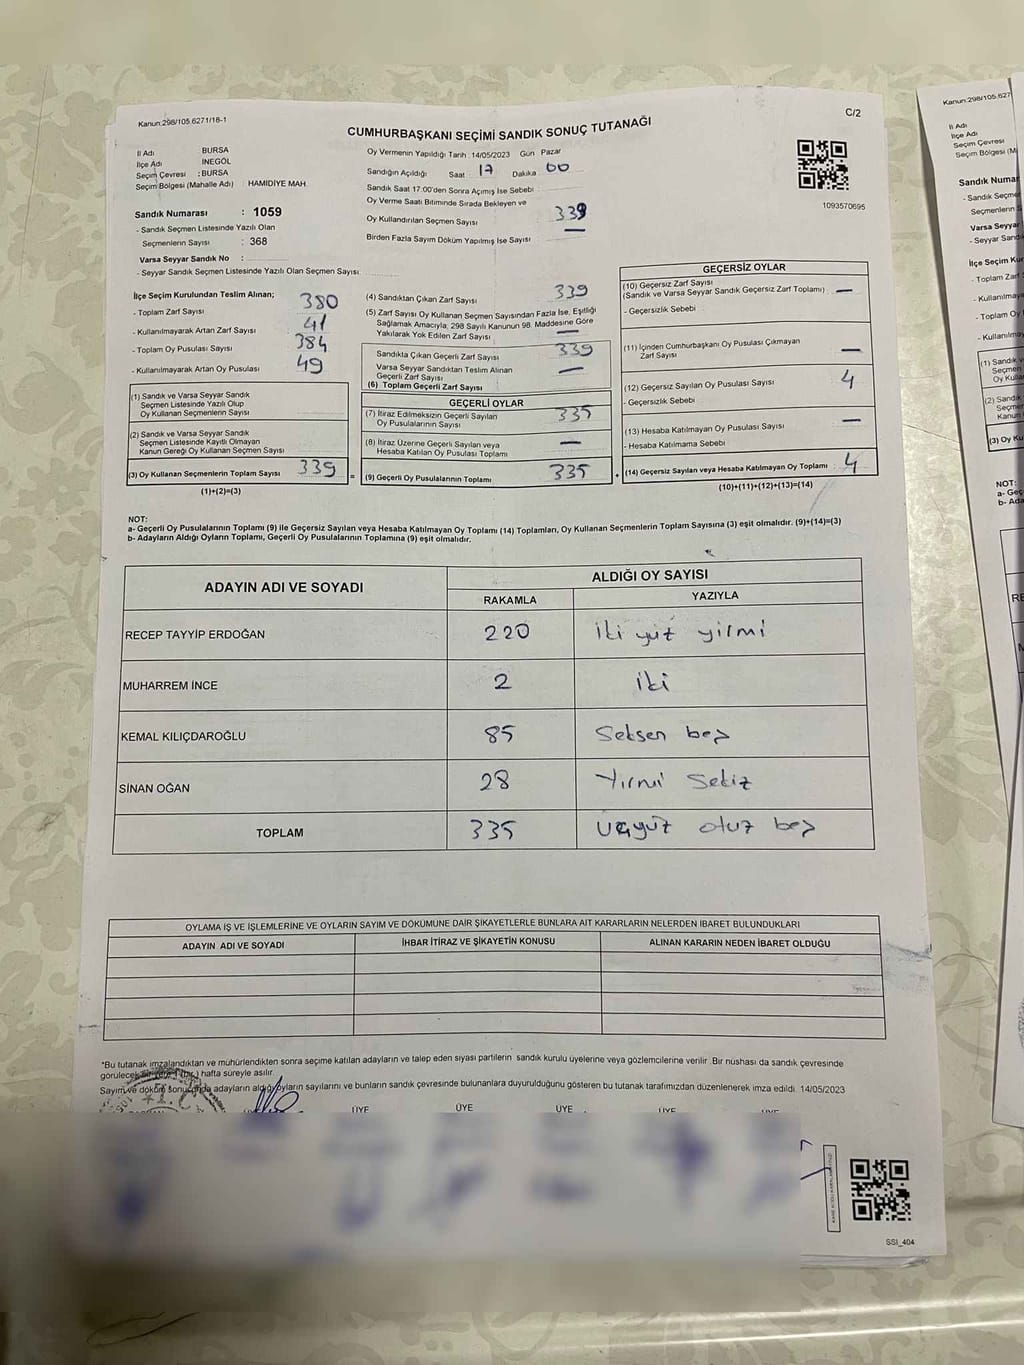 Kanun:298/105.6271/18-1
C/2
CUMHURBAŞKANI SEÇİMİ SANDIK SONUÇ TUTANAĞI
İl Adı BURSA
İlçe Adı INEGÖL
Seçim Çevresi : BURSA
Seçim Bölgesi (Mahalle Adı) HAMIDIYE MAH.
Sandık Numarası : 1059
- Sandık Seçmen Listesinde Yazılı Olan
Seçmenlerin Sayısı : 368
Varsa Seyyar Sandık No :
- Seyyar Sandık Seçmen Listesinde Yazılı Olan Seçmen Sayısı
Oy Vermenin Yapıldığı Tarih :14/05/2023 Gün Pazar
Sandığın Açıldığı Saat 17 Dakika 00
Sandık Saat 17.00'den Sonra Açımış İse Sebebi
Oy Verme Saati Bitiminde Sırada Bekleyen ve
Oy Kullandırılan Seçmen Sayısı 339
Birden Fazla Sayım Döküm Yapılmış İse Sayısı —
1093570695
İlçe Seçim Kurulundan Teslim Alınan;
- Toplam Zarf Sayısı 380
- Kullanılmayarak Artan Zarf Sayısı 41
- Toplam Oy Pusulası Sayısı 384
- Kullanılmayarak Artan Oy Pusulası 49
(1) Sandık ve Varsa Seyyar Sandık
Seçmen Listesinde Yazılı Olup
Oy Kullanan Seçmenlerin Sayısı
(2) Sandık ve Varsa Seyyar Sandık
Seçmen Listesinde Kayıtlı Olmayan
Kanun Gereği Oy Kullanan Seçmen Sayısı
(3) Oy Kullanan Seçmenlerin Toplam Sayısı 339
(1)+(2)=(3)
=
(4) Sandıktan Çıkan Zarf Sayısı 339
(5) Zarf Sayısı Oy Kullanan Seçmen Sayısından Fazla İse, Eşitliği
Sağlamak Amacıyla; 298 Sayılı Kanunun 98. Maddesine Göre
Yakılarak Yok Edilen Zarf Sayısı —
Sandıkta Çıkan Geçerli Zarf Sayısı 339
Varsa Seyyar Sandıktan Teslim Alınan
Geçerli Zarf Sayısı —
(6) Toplam Geçerli Zarf Sayısı
GEÇERLİ OYLAR
(7) İtiraz Edilmeksizin Geçerli Sayılan
Oy Pusulalarının Sayısı 335
(8) İtiraz Üzerine Geçerli Sayılan veya
Hesaba Katılan Oy Pusulası Toplamı —
(9) Geçerli Oy Pusulalarının Toplamı 335
GEÇERSİZ OYLAR
(10) Geçersiz Zarf Sayısı
(Sandık ve Varsa Seyyar Sandık Geçersiz Zarf Toplamı) —
- Geçersizlik Sebebi
(11) İçinden Cumhurbaşkanı Oy Pusulası Çıkmayan
Zarf Sayısı —
(12) Geçersiz Sayılan Oy Pusulası Sayısı 4
- Geçersizlik Sebebi
(13) Hesaba Katılmayan Oy Pusulası Sayısı —
- Hesaba Katılmama Sebebi
(14) Geçersiz Sayılan veya Hesaba Katılmayan Oy Toplamı 4
(10)+(11)+(12)+(13)=(14)
NOT:
a- Geçerli Oy Pusulalarının Toplamı (9) ile Geçersiz Sayılan veya Hesaba Katılmayan Oy Toplamı (14) Toplamları, Oy Kullanan Seçmenlerin Toplam Sayısına (3) eşit olmalıdır. (9)+(14)=(3)
b- Adayların Aldığı Oyların Toplamı, Geçerli Oy Pusulalarının Toplamına (9) eşit olmalıdır.
ADAYIN ADI VE SOYADI
ALDIĞI OY SAYISI
RAKAMLA YAZIYLA
RECEP TAYYİP ERDOĞAN 220 iki yüz yirmi
MUHARREM İNCE 2 iki
KEMAL KILIÇDAROĞLU 85 Seksen beş
SİNAN OĞAN 28 Yirmi Sekiz
TOPLAM 335 üçyüz otuz beş
OYLAMA İŞ VE İŞLEMLERİNE VE OYLARIN SAYIM VE DÖKÜMÜNE DAİR ŞİKAYETLERLE BUNLARA AİT KARARLARIN NELERDEN İBARET BULUNDUKLARI
ADAYIN ADI VE SOYADI İHBAR İTİRAZ VE ŞİKAYETİN KONUSU ALINAN KARARIN NEDEN İBARET OLDUĞU
*Bu tutanak imzalandıktan ve mühürlendikten sonra seçime katılan adayların ve talep eden siyasi partilerin sandık kurulu üyelerine veya gözlemcilerine verilir. Bir nüshası da sandık çevresinde
görülecek hafta süreyle asılır.
Sayım ve döküm sonucunda adayların aldığı oyların sayılarını ve bunların sandık çevresinde bulunanlara duyurulduğunu gösteren bu tutanak tarafımızdan düzenlenerek imza edildi. 14/05/2023
ÜYE ÜYE ÜYE ÜYE ÜYE
SSI_404
Kanun:298/105.627
İl Adı
İlçe Adı
Seçim Çevresi
Seçim Bölgesi (M
Sandık Numar
- Sandık Seçme
Seçmenlerin S
Varsa Seyyar
- Seyyar Sandı
İlçe Seçim Kur
- Toplam Zarf
- Kullanılmaya
- Toplam Oy
- Kullanılmay
(1) Sandık
Seçmen
Oy Kulla
(2) Sandık
Seçmen
Kanun
(3) Oy Ku
NOT:
a- Geç
b- Ada
RE